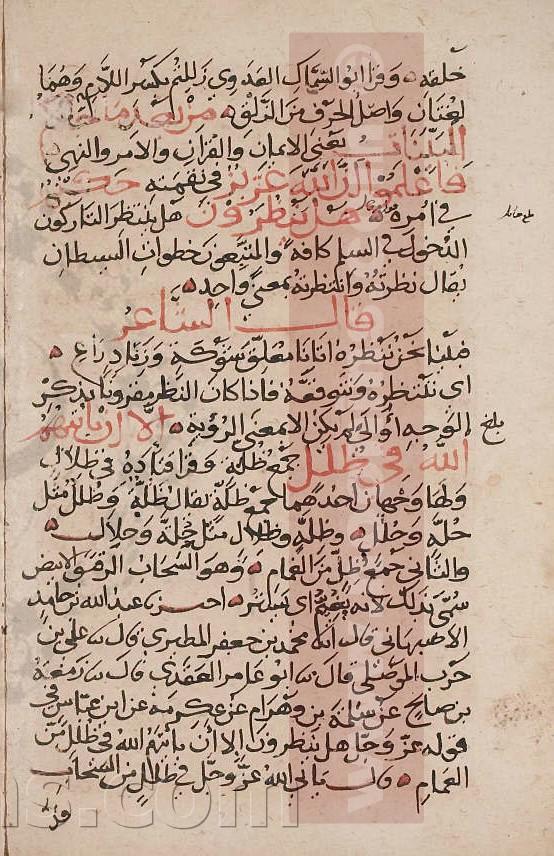 خلقه وقرا ابو السماك العدوي زللتم بكسر اللام وهما
لغتان واصل الحرف من الزلق من بعد ما جاتكم
البينات يعني الايمان والقران والامر والنهي
فاعلموا ان الله عزيز في نقمته حكيم
في امره هل ينظرون هل ينتظر التاركون
الدخول في السلم كافة والمتبعون خطوات الشيطان
يقال نظرته وانتظرته بمعنى واحد
قال الشاعر
فبينا نحن ننظره اتانا معلق شكوة وزناد راع
اي ننتظره ونتوقعه فاذا كان النظر مقرونا بذكر
الوجه او الى لم يكن الا بمعنى الروية الا ان ياتيهم
الله في ظلل جمع ظلة وقرا قتادة في ظلال
ولها وجهان احدهما جمع ظلة يقال ظلة وظلل مثل
حلة وحلل وظلة وظلال مثل حلة وحلال
والثاني جمع ظل من الغمام وهو السحاب الرقيق الابيض
سمي بذلك لانه يغم اي يستر اخبرنا عبد الله بن حامد
الاصبهاني قال انا محمد بن جعفر المطيري قال نا علي بن
حرب الموصلي قال نا ابو عامر العقدي قال نا زمعة
بن صالح عن سلمة بن وهرام عن عكرمة عن ابن عباس في
قوله عز وجل هل ينظرون الا ان ياتيهم الله في ظلل من
الغمام قال ياتي الله عز وجل في ظلل من السحاب
بلغ